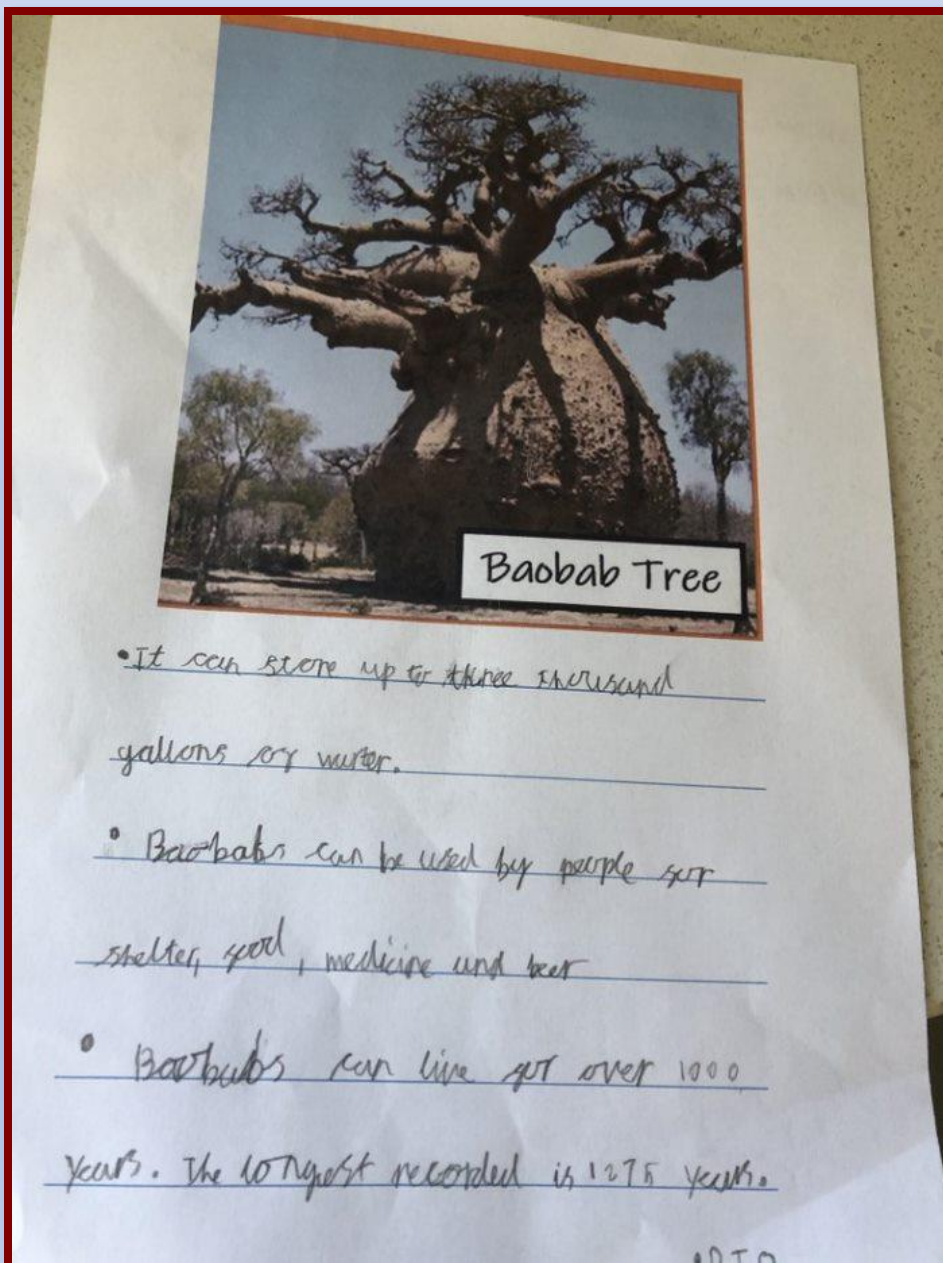 Baobab Tree
•It can store up to three thousand
gallons of water.
• Baobabs can be used by people for
shelter, food, medicine and beer
• Baobabs can live for over 1000
years. The longest recorded is 1275 years.